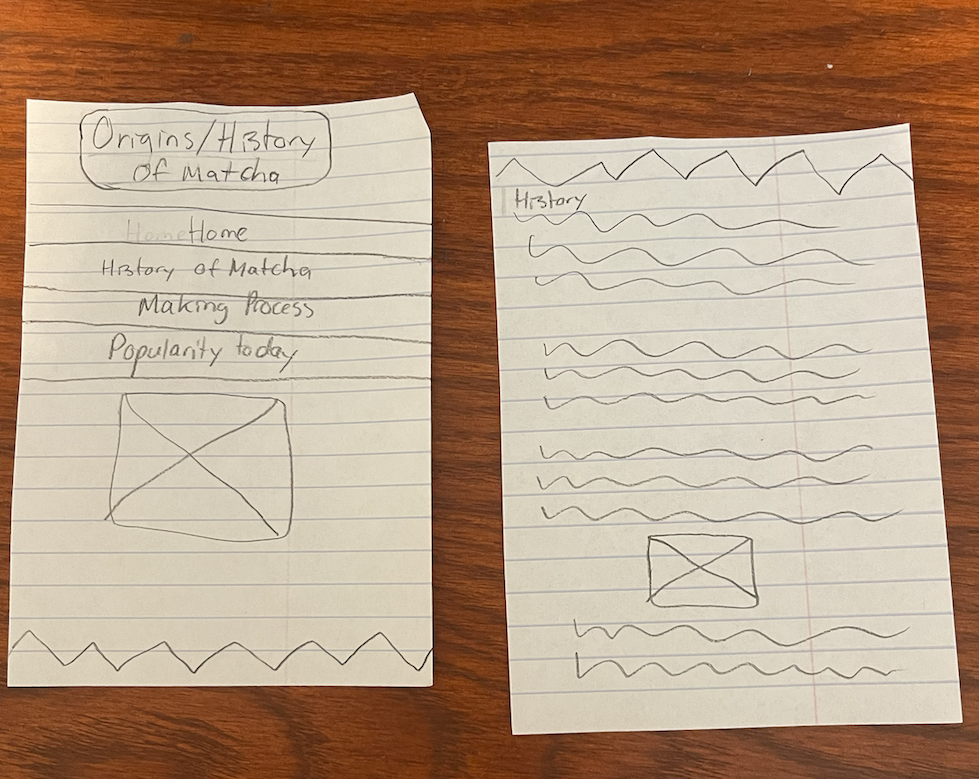 Origins/History
of Matcha
HomeHome
History of Matcha
Making Process
Popularity today
History